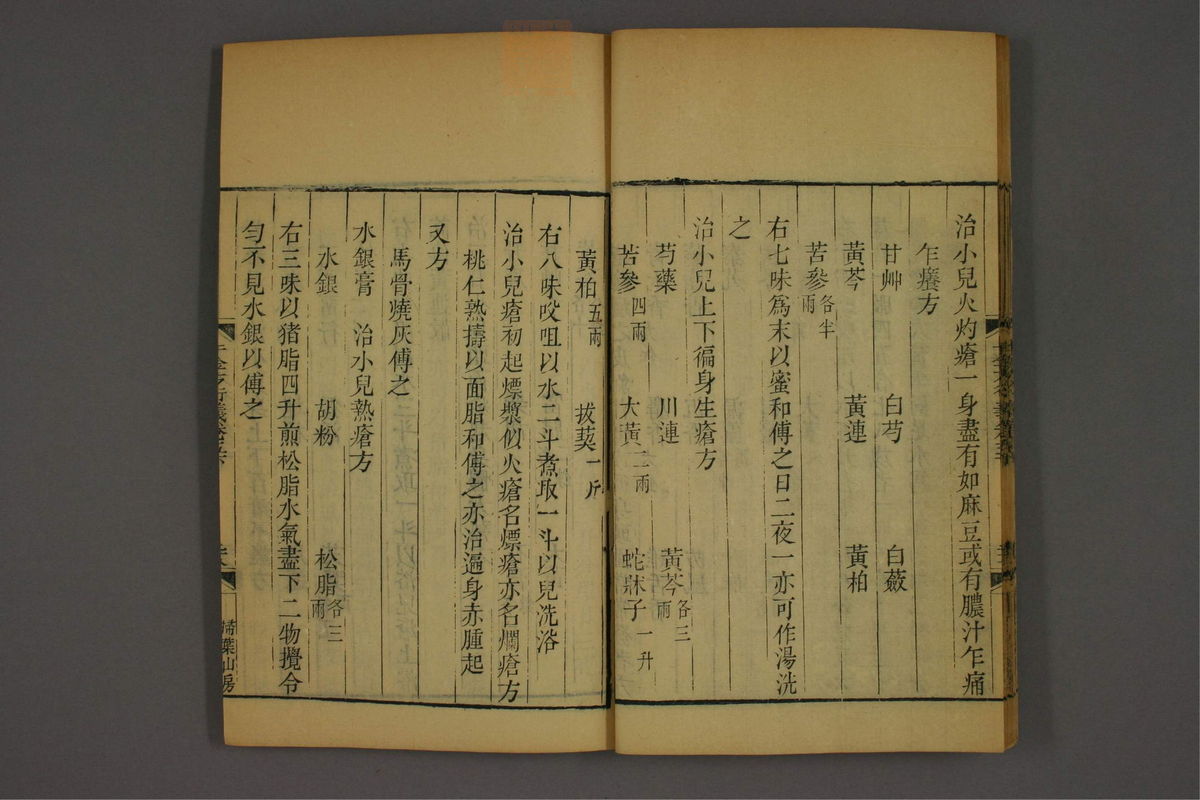 治小兒火灼瘡一身盡有如麻豆或有膿汁乍痛
乍癢方
甘艸 白芍 白蘞
黃芩 黃連 黃柏
苦參各半兩
右七味爲末以蜜和傅之日二夜一亦可作湯洗
之
治小兒上下徧身生瘡方
芍藥 川連 黃芩各三兩
苦參四兩 大黃二兩 蛇牀子一升
黃柏五兩 拔葜一斤
右八味㕮咀以水二斗煮取一斗以兒洗浴
治小兒瘡初起熛漿似火瘡名熛瘡亦名爛瘡方
桃仁熟擣以面脂和傅之亦治遍身赤腫起
又方
馬骨燒灰傅之
水銀膏 治小兒熱瘡方
水銀 胡粉 松脂各三兩
右三味以猪脂四升煎松脂水氣盡下二物攪令
勻不見水銀以傅之
掃葉山房